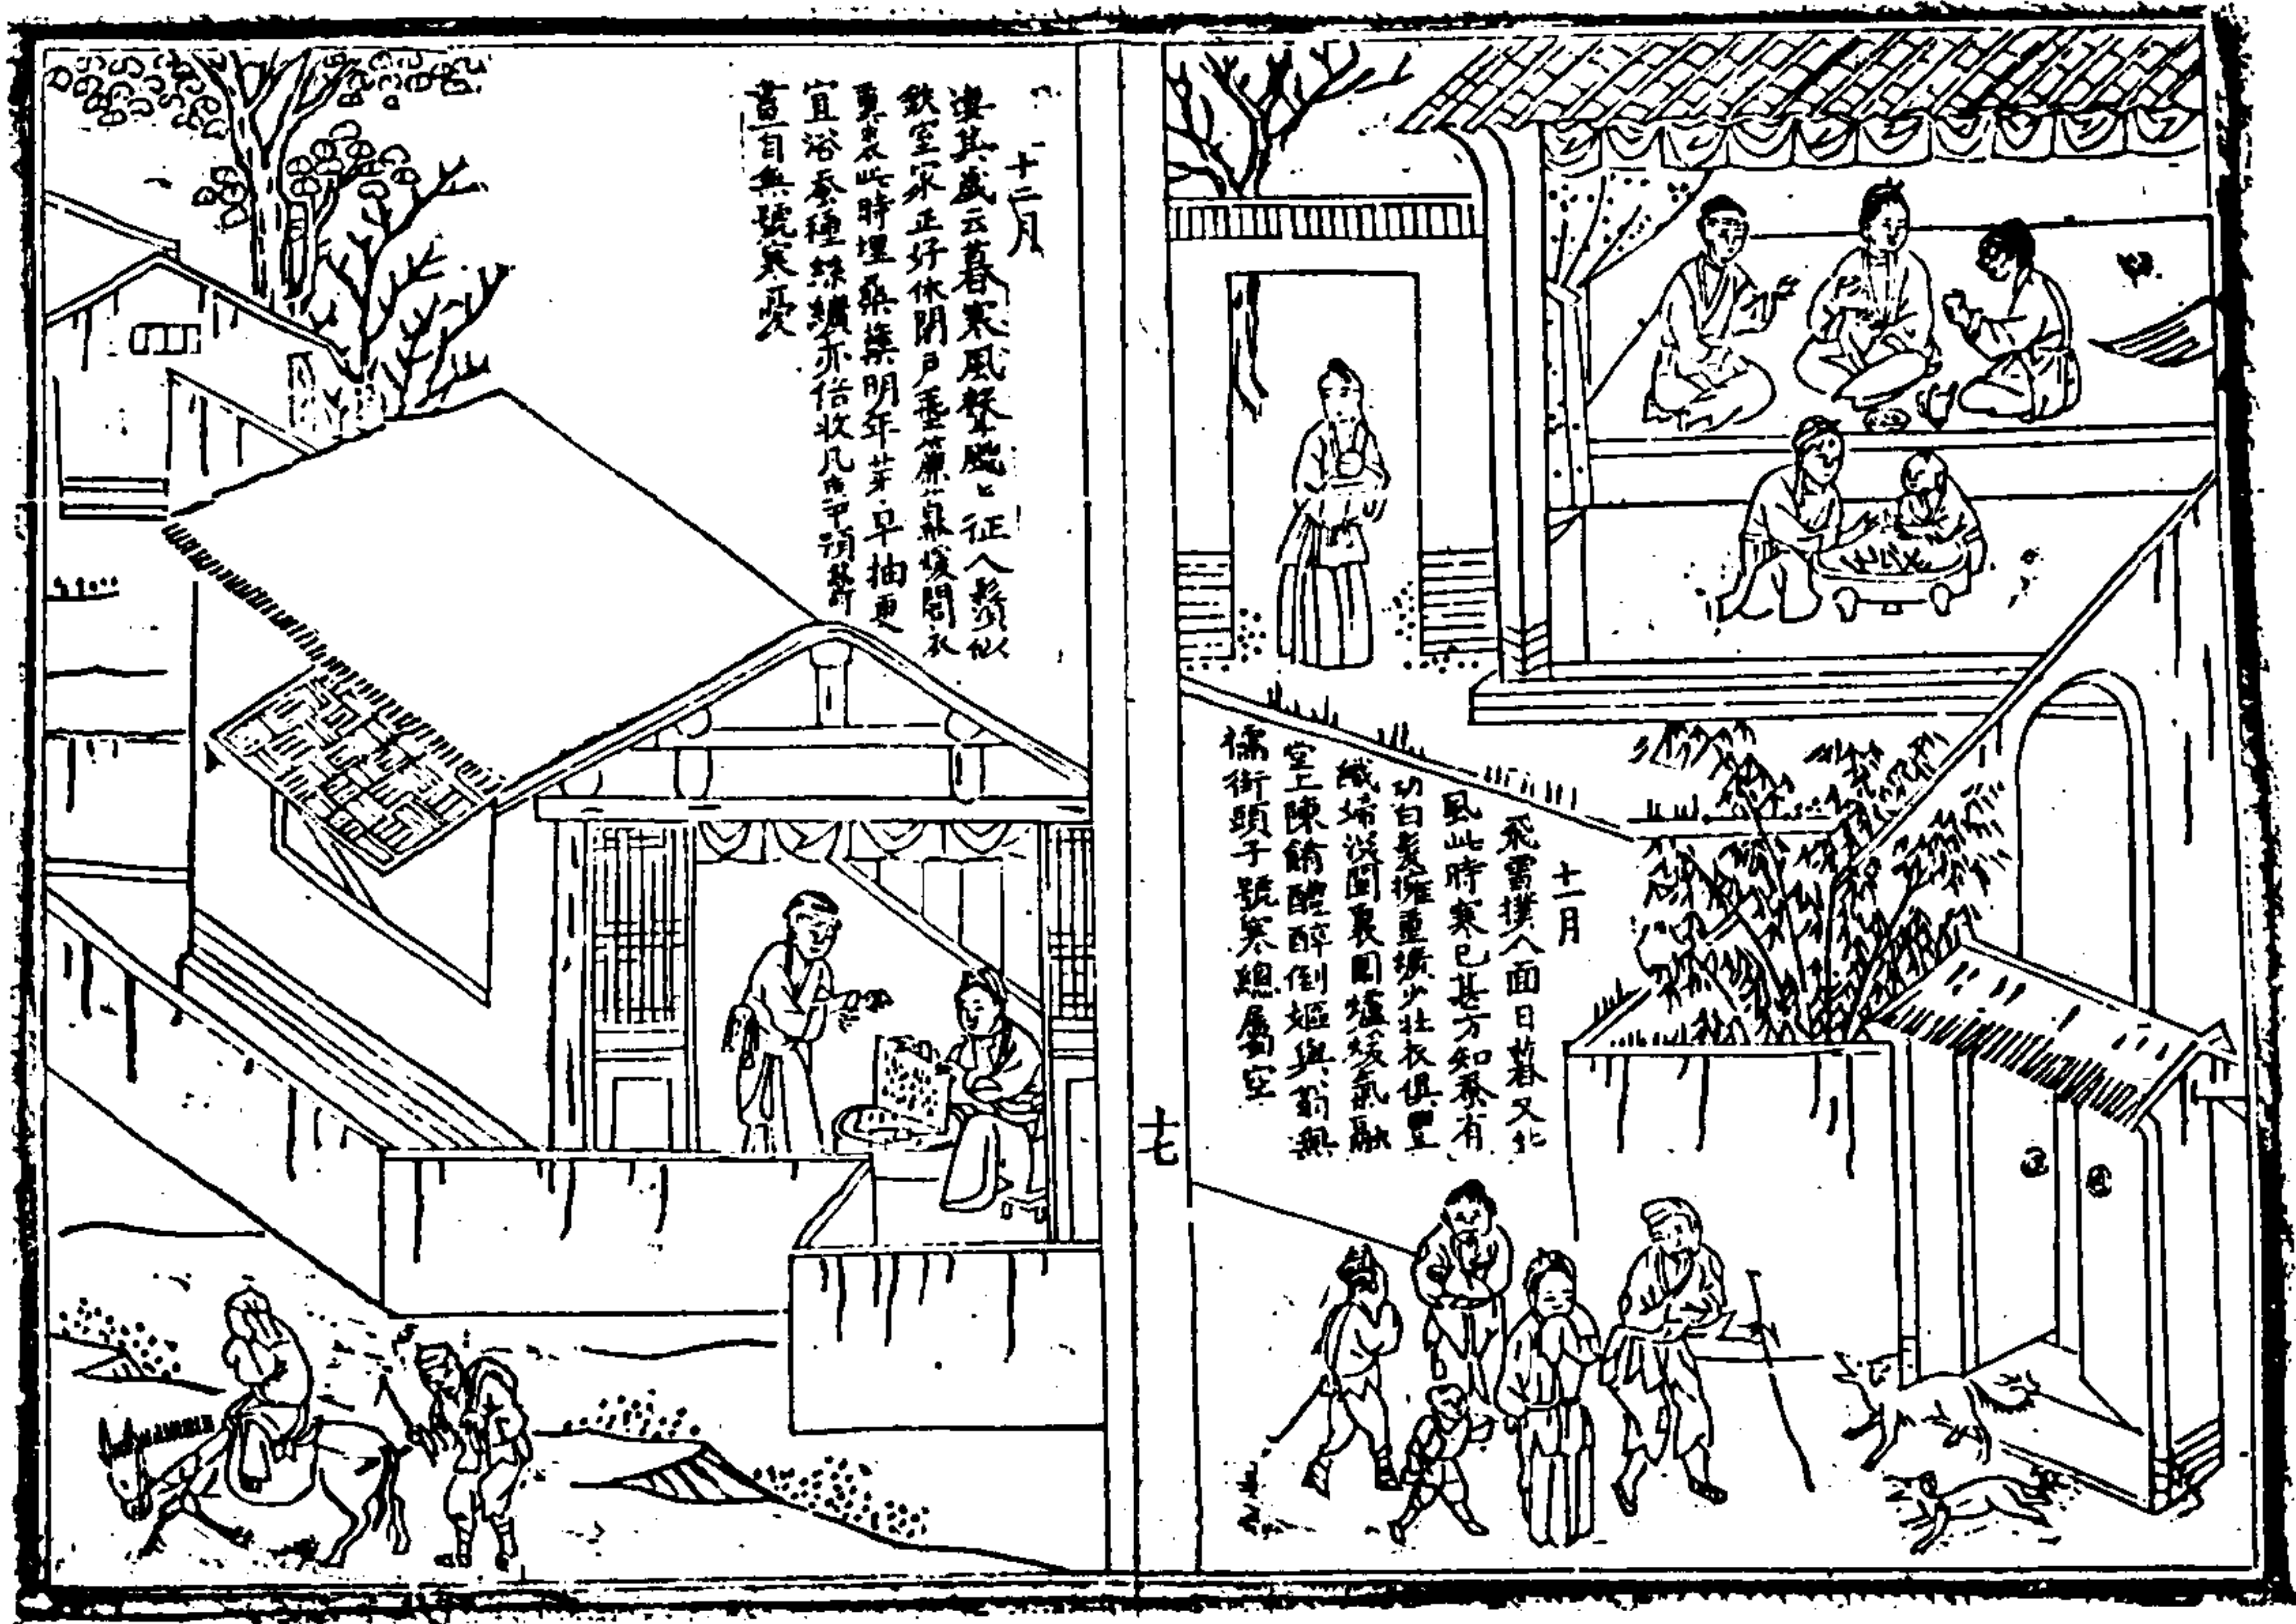 十一月
飛雪撲人面日暮又北
風此時寒已甚方知蚕有
功白髮擁重纊少壯衣俱豐
織婦深閨裏圍爐煖氣融
堂上陳餚醴醉倒嫗與翁無
襦街頭子號寒總屬空
十七
十二月
其歲云暮寒風聲颼〻征人鬢似
鉄室家正好休閉戶垂簾幕煖閣衣
重裘此時埋桑葉明年芽早抽更
宜浴蚕種絲纊亦倍收凡事
自無號寒憂